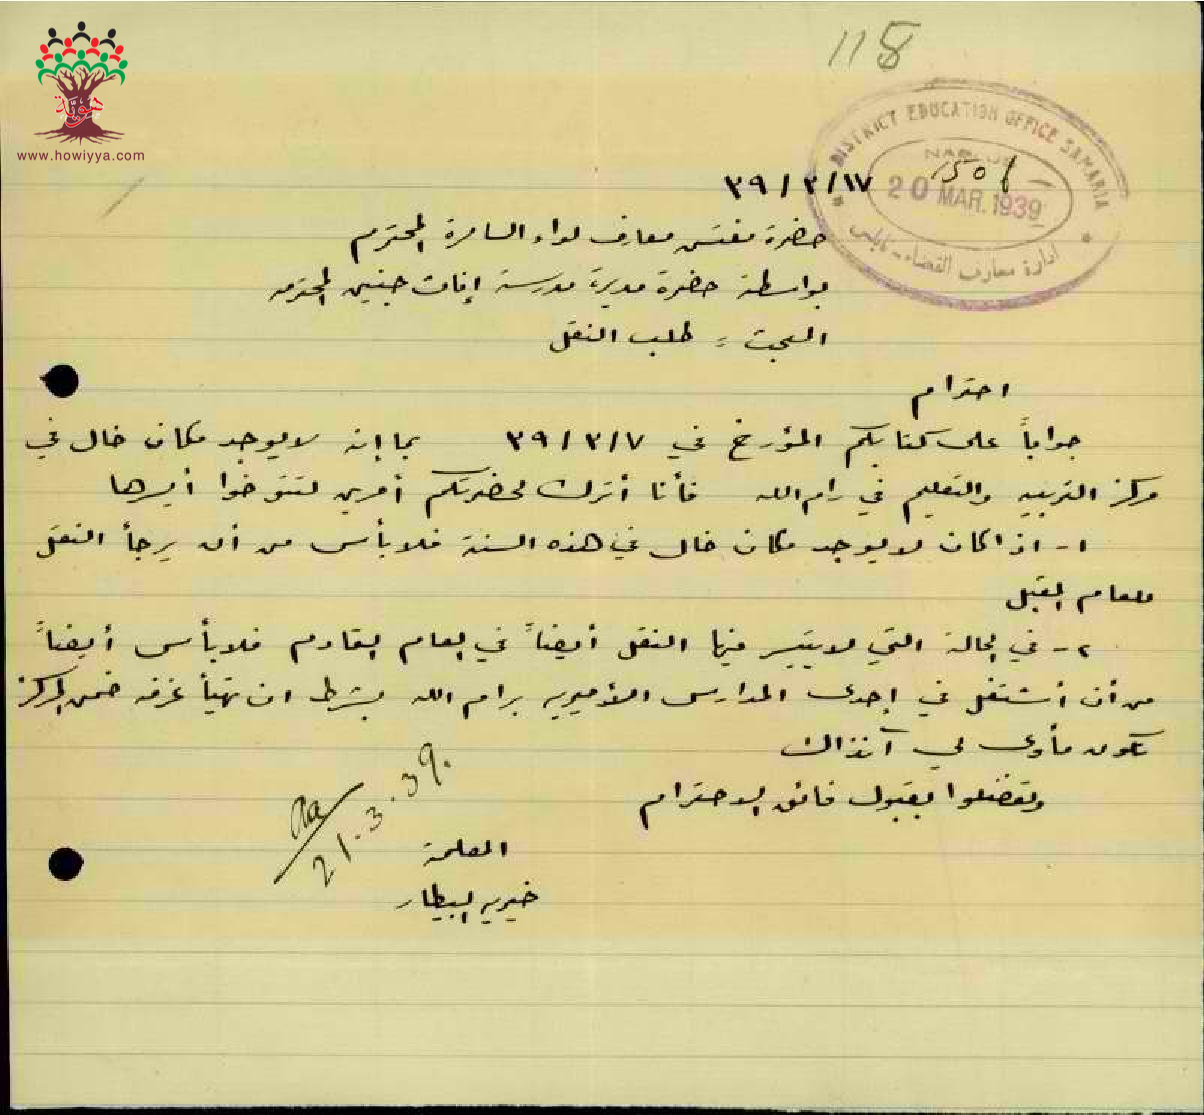 هوية
www.howiyya.com
118
DISTRICT EDUCATION OFFICE SAMARIA
NABLUS
20 MAR. 1939
ادارة معارف القضاء - نابلس
٣٩/٣/١٧
حضرة مفتش معارف لواء السامرة المحترم
بواسطة حضرة مديرة مدرسة إناث جنين المحترمه
المبحث = طلب النقل
احترام
جواباً على كتابكم المؤرخ في ٣٩/٣/٧ بما إنه لا يوجد مكان خال في
مركز التربيه والتعليم في رام الله فأنا أترك لحضرتكم أمرين لتتوخوا أيسرها
١- اذا كان لا يوجد مكان خال في هذه السنة فلا بأس من أن يرجأ النقل
للعام المقبل
٢- في الحالة التي لا يتيسر فيها النقل أيضاً في العام القادم فلا بأس أيضاً
من أن أشتغل في إحدى المدارس الأميريه برام الله بشرط ان تهيأ غرفه ضمن المركز
تكون مأوى لي آنذاك
وتفضلوا بقبول فائق الاحترام
المعلمة
خيريه البيطار
21.3.39.